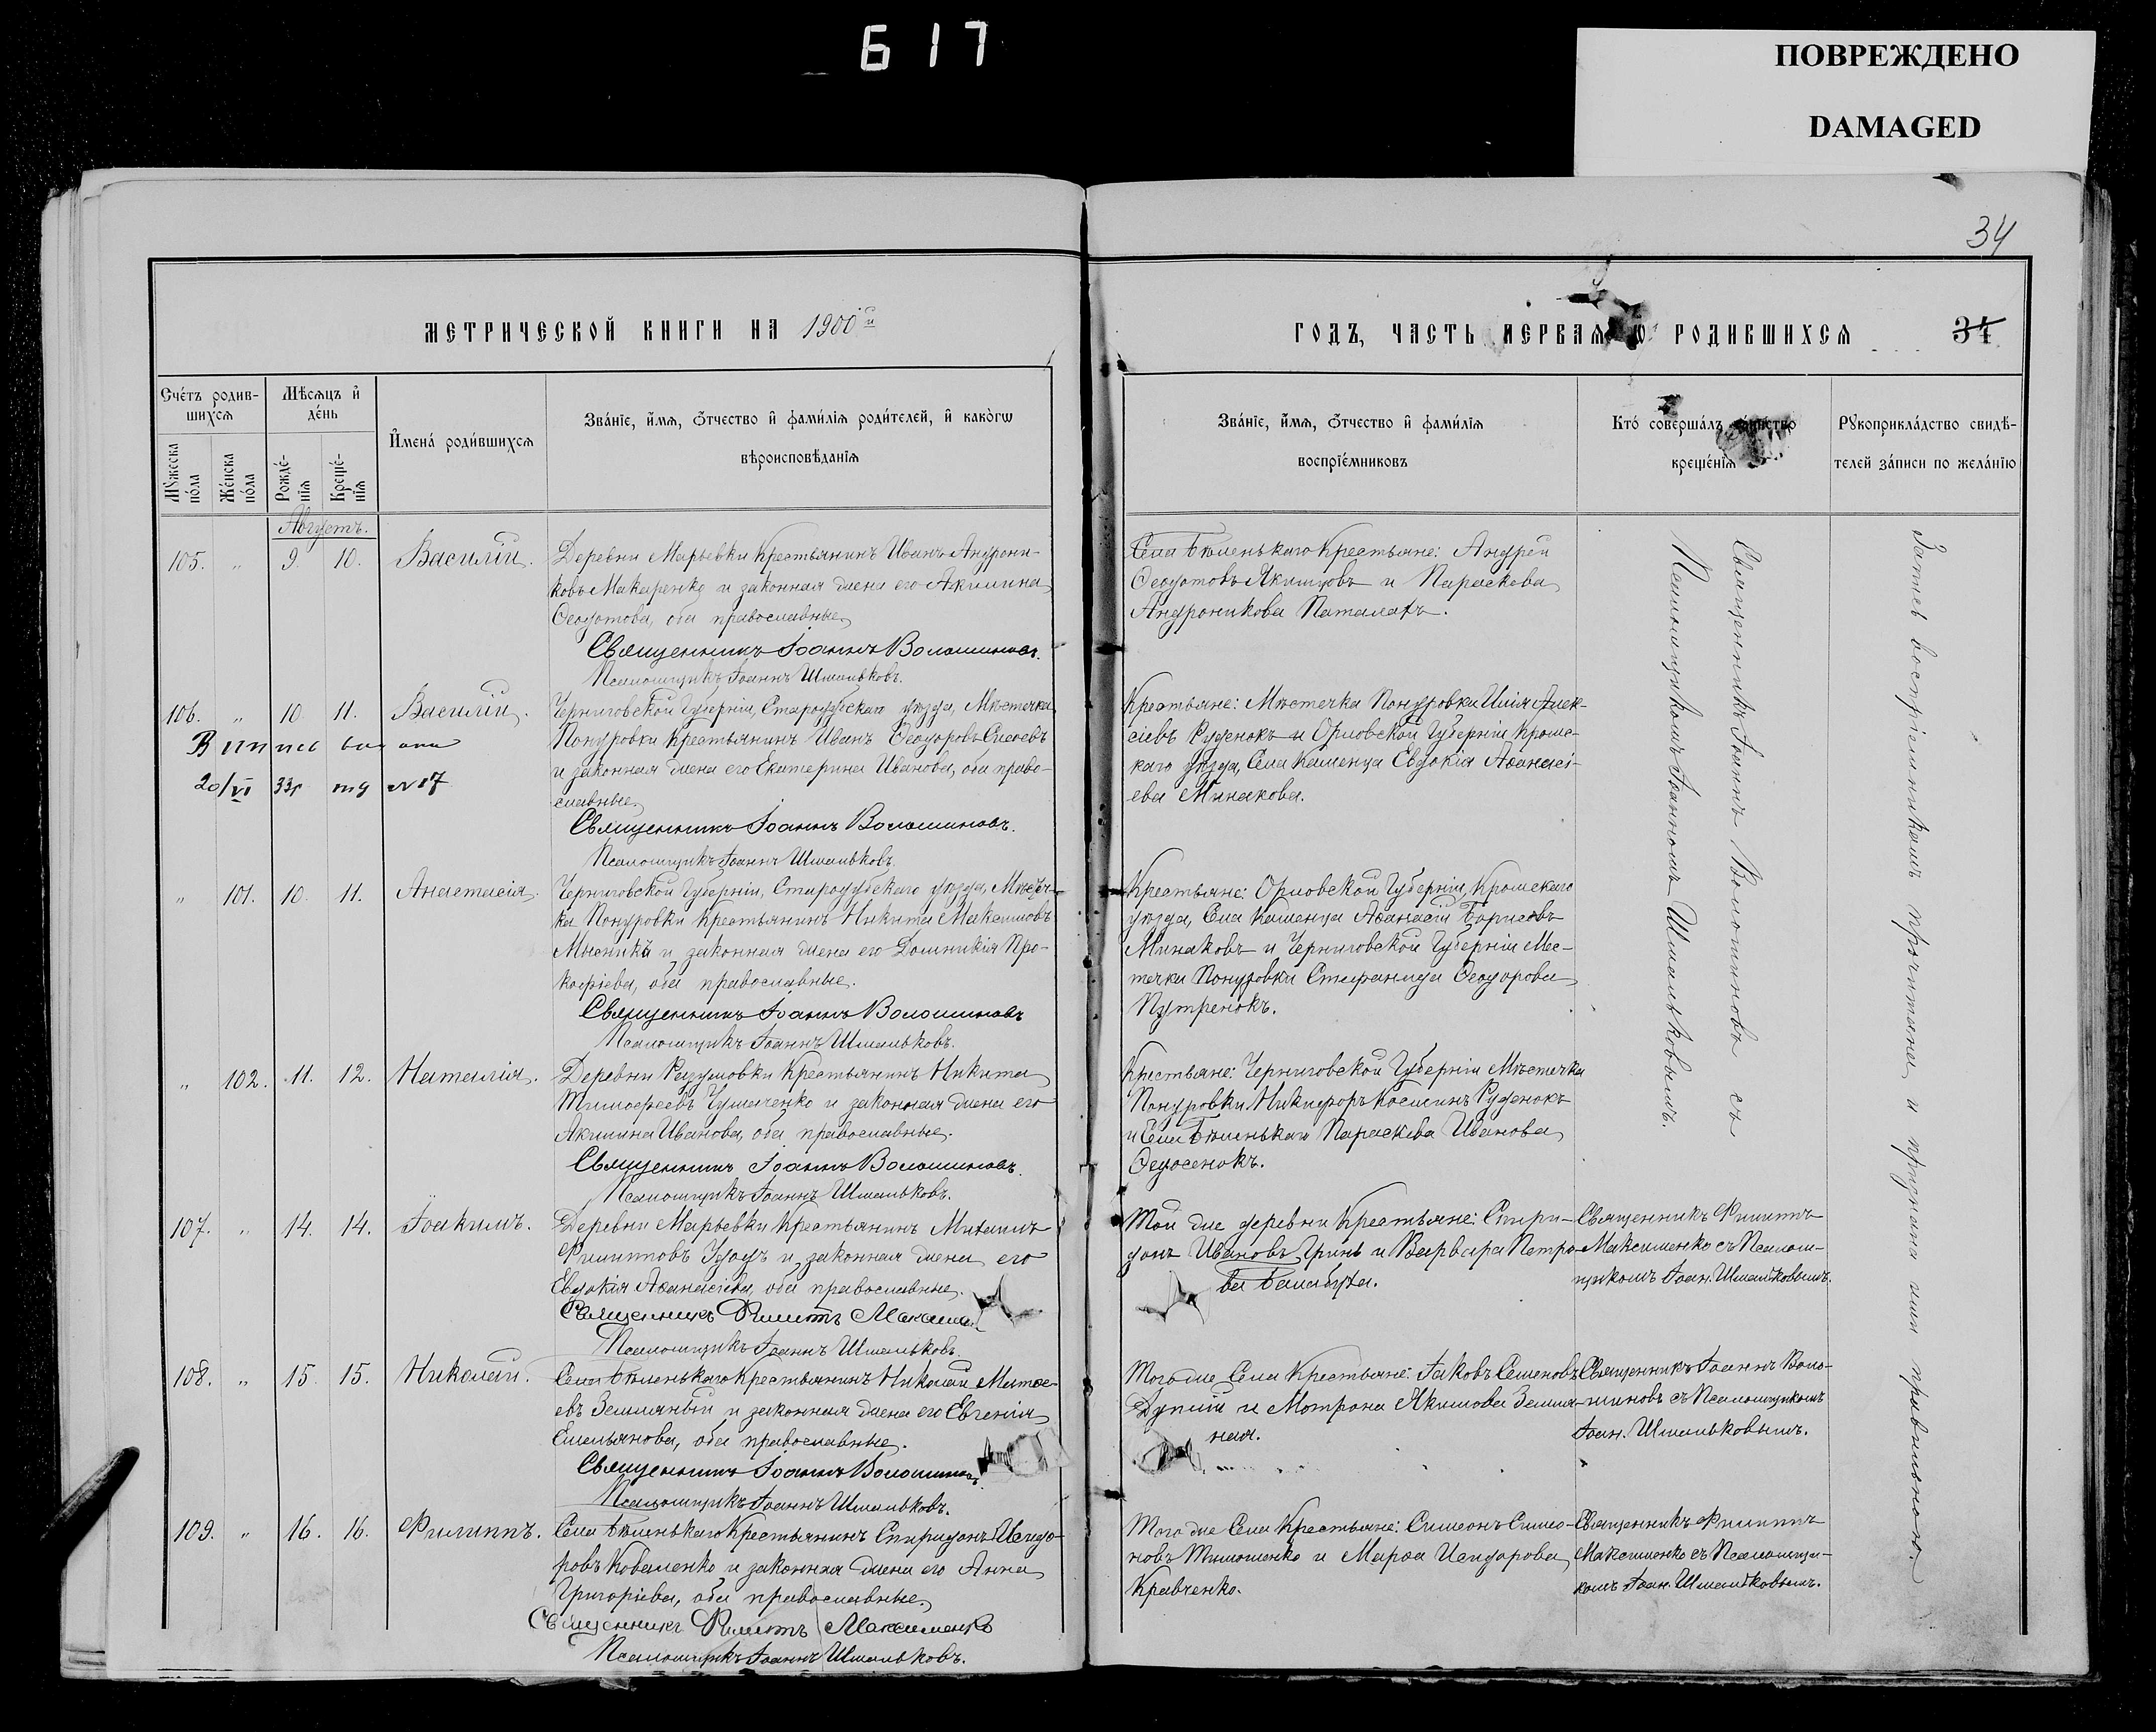 617
ПОВРЕЖДЕНО
DAMAGED
34
МЕТРИЧЕСКОЙ КНИГИ НА 1900й
ГОДЪ, ЧАСТЬ ПЕРВАЯ О РОДИВШИХСЯ
34
Сче́тъ родив-
шихся
Мѣсяцъ и҆
де́нь
И҆мена́ роди́вшихся
Зва́нїе, и҆́мѧ, ѻ҆́тчество и҆ фами́лїѧ роди́телей, и҆ како́гѡ
вѣроисповѣданїѧ
Мꙋжеска по́ла
Же́нска по́ла
Рожде́-
нїѧ
Креще́-
нїѧ
Зва́нїе, и҆́мѧ, ѻ҆́тчество и҆ фами́лїѧ
воспрїе́мниковъ
Кто́ соверша́лъ таинство
креще́нїѧ
Рꙋкоприкла́дство свидѣ-
телей за́писи по жела́нїю
Августъ.
105. „ 9. 10. Василій.
Деревни Марьевки крестьянинъ Иванъ Андрони-
ковъ Макаренко и законная жена его Акилина
Ѳеодотова, оба православные.
Священникъ Іоаннъ Волошиновъ.
Псаломщикъ Іоаннъ Шмальковъ.
Села Бѣленькаго крестьяне: Андрей
Ѳеодотовъ Якимцовъ и Параскева
Андроникова Паталахъ.
106. „ 10. 11. Василій.
20/VI 33г № 17
Черниговской Губерніи, Стародубскаго уѣзда, Мѣстечка
Понуровки крестьянинъ Иванъ Ѳеодоровъ Сысоевъ
и законная жена его Екатерина Иванова, оба право-
славные.
Священникъ Іоаннъ Волошиновъ.
Псаломщикъ Іоаннъ Шмальковъ.
Крестьяне: Мѣстечка Понуровки Илія Алек-
сіевъ Руденокъ и Орловской Губерніи Кром-
скаго уѣзда, Села Каменца Евдокія Аѳанасі-
ева Минакова.
„ 101. 10. 11. Анастасія.
Черниговской Губерніи, Стародубскаго уѣзда, Мѣстеч-
ка Понуровки крестьянинъ Никита Максимовъ
и законная жена его Домникія Про-
кофіева, оба православные.
Священникъ Іоаннъ Волошиновъ
Псаломщикъ Іоаннъ Шмальковъ.
Крестьяне: Орловской Губерніи, Кромскаго
уѣзда, Села Каменца Аѳанасій Борисовъ
Минаковъ и Черниговской Губерніи Мес-
течка Понуровки Стефанида Ѳеодорова
Путренокъ.
„ 102. 11. 12. Наталія.
Деревни Разумовки крестьянинъ Никита
Тимофеевъ Чумаченко и законная жена его
Акилина Иванова, оба православные.
Священникъ Іоаннъ Волошиновъ.
Псаломщикъ Іоаннъ Шмальковъ.
Крестьяне: Черниговской Губерніи Мѣстечка
Понуровки Никифоръ Косминъ Руденокъ
и Села Бѣленькаго Параскева Иванова
Ѳедосенокъ.
Священникъ Іоаннъ Волошиновъ съ
Псаломщикомъ Іоанномъ Шмальковымъ.
107. „ 14. 14. Іоакимъ.
Деревни Марьевки крестьянинъ Михаилъ
Филипповъ Удодъ и законная жена его
Евдокія Аѳанасіева, оба православные.
Священникъ Филиппъ Максим
Псаломщикъ Іоаннъ Шмальковъ.
Той же деревни крестьяне: Спири-
донъ Ивановъ Гринь и Варвара Петро-
ва Балабуха.
Священникъ Филиппъ
Максименко съ Псалом-
щикомъ Іоан. Шмальковымъ.
108. „ 15. 15. Николай.
Села Бѣленькаго крестьянинъ Николай Матѳе-
евъ Земляный и законная жена его Евгенія
Емельянова, оба православные.
Священникъ Іоаннъ Волошиновъ.
Псаломщикъ Іоаннъ Шмальковъ.
Того же Села крестьяне: Іаковъ Семеновъ
Дупий и Мотрона Якимова Земля-
ная.
Священникъ Іоаннъ Воло-
шиновъ съ Псаломщикомъ
Іоан. Шмальковымъ.
109. „ 16. 16. Филиппъ.
Села Бѣленькаго крестьянинъ Спиридонъ Исидо-
ровъ Коваленко и законная жена его Анна
Григоріева, оба православные.
Священникъ Филиппъ Максименко
Псаломщикъ Іоаннъ Шмальковъ.
Того же Села крестьяне: Симеонъ Симео-
новъ Тимошенко и Марѳа Исидорова
Кравченко.
Священникъ Филиппъ
Максименко съ Псаломщи-
комъ Іоан. Шмальковымъ.
Запись воспріемникамъ прочитана и признана ими правильною.